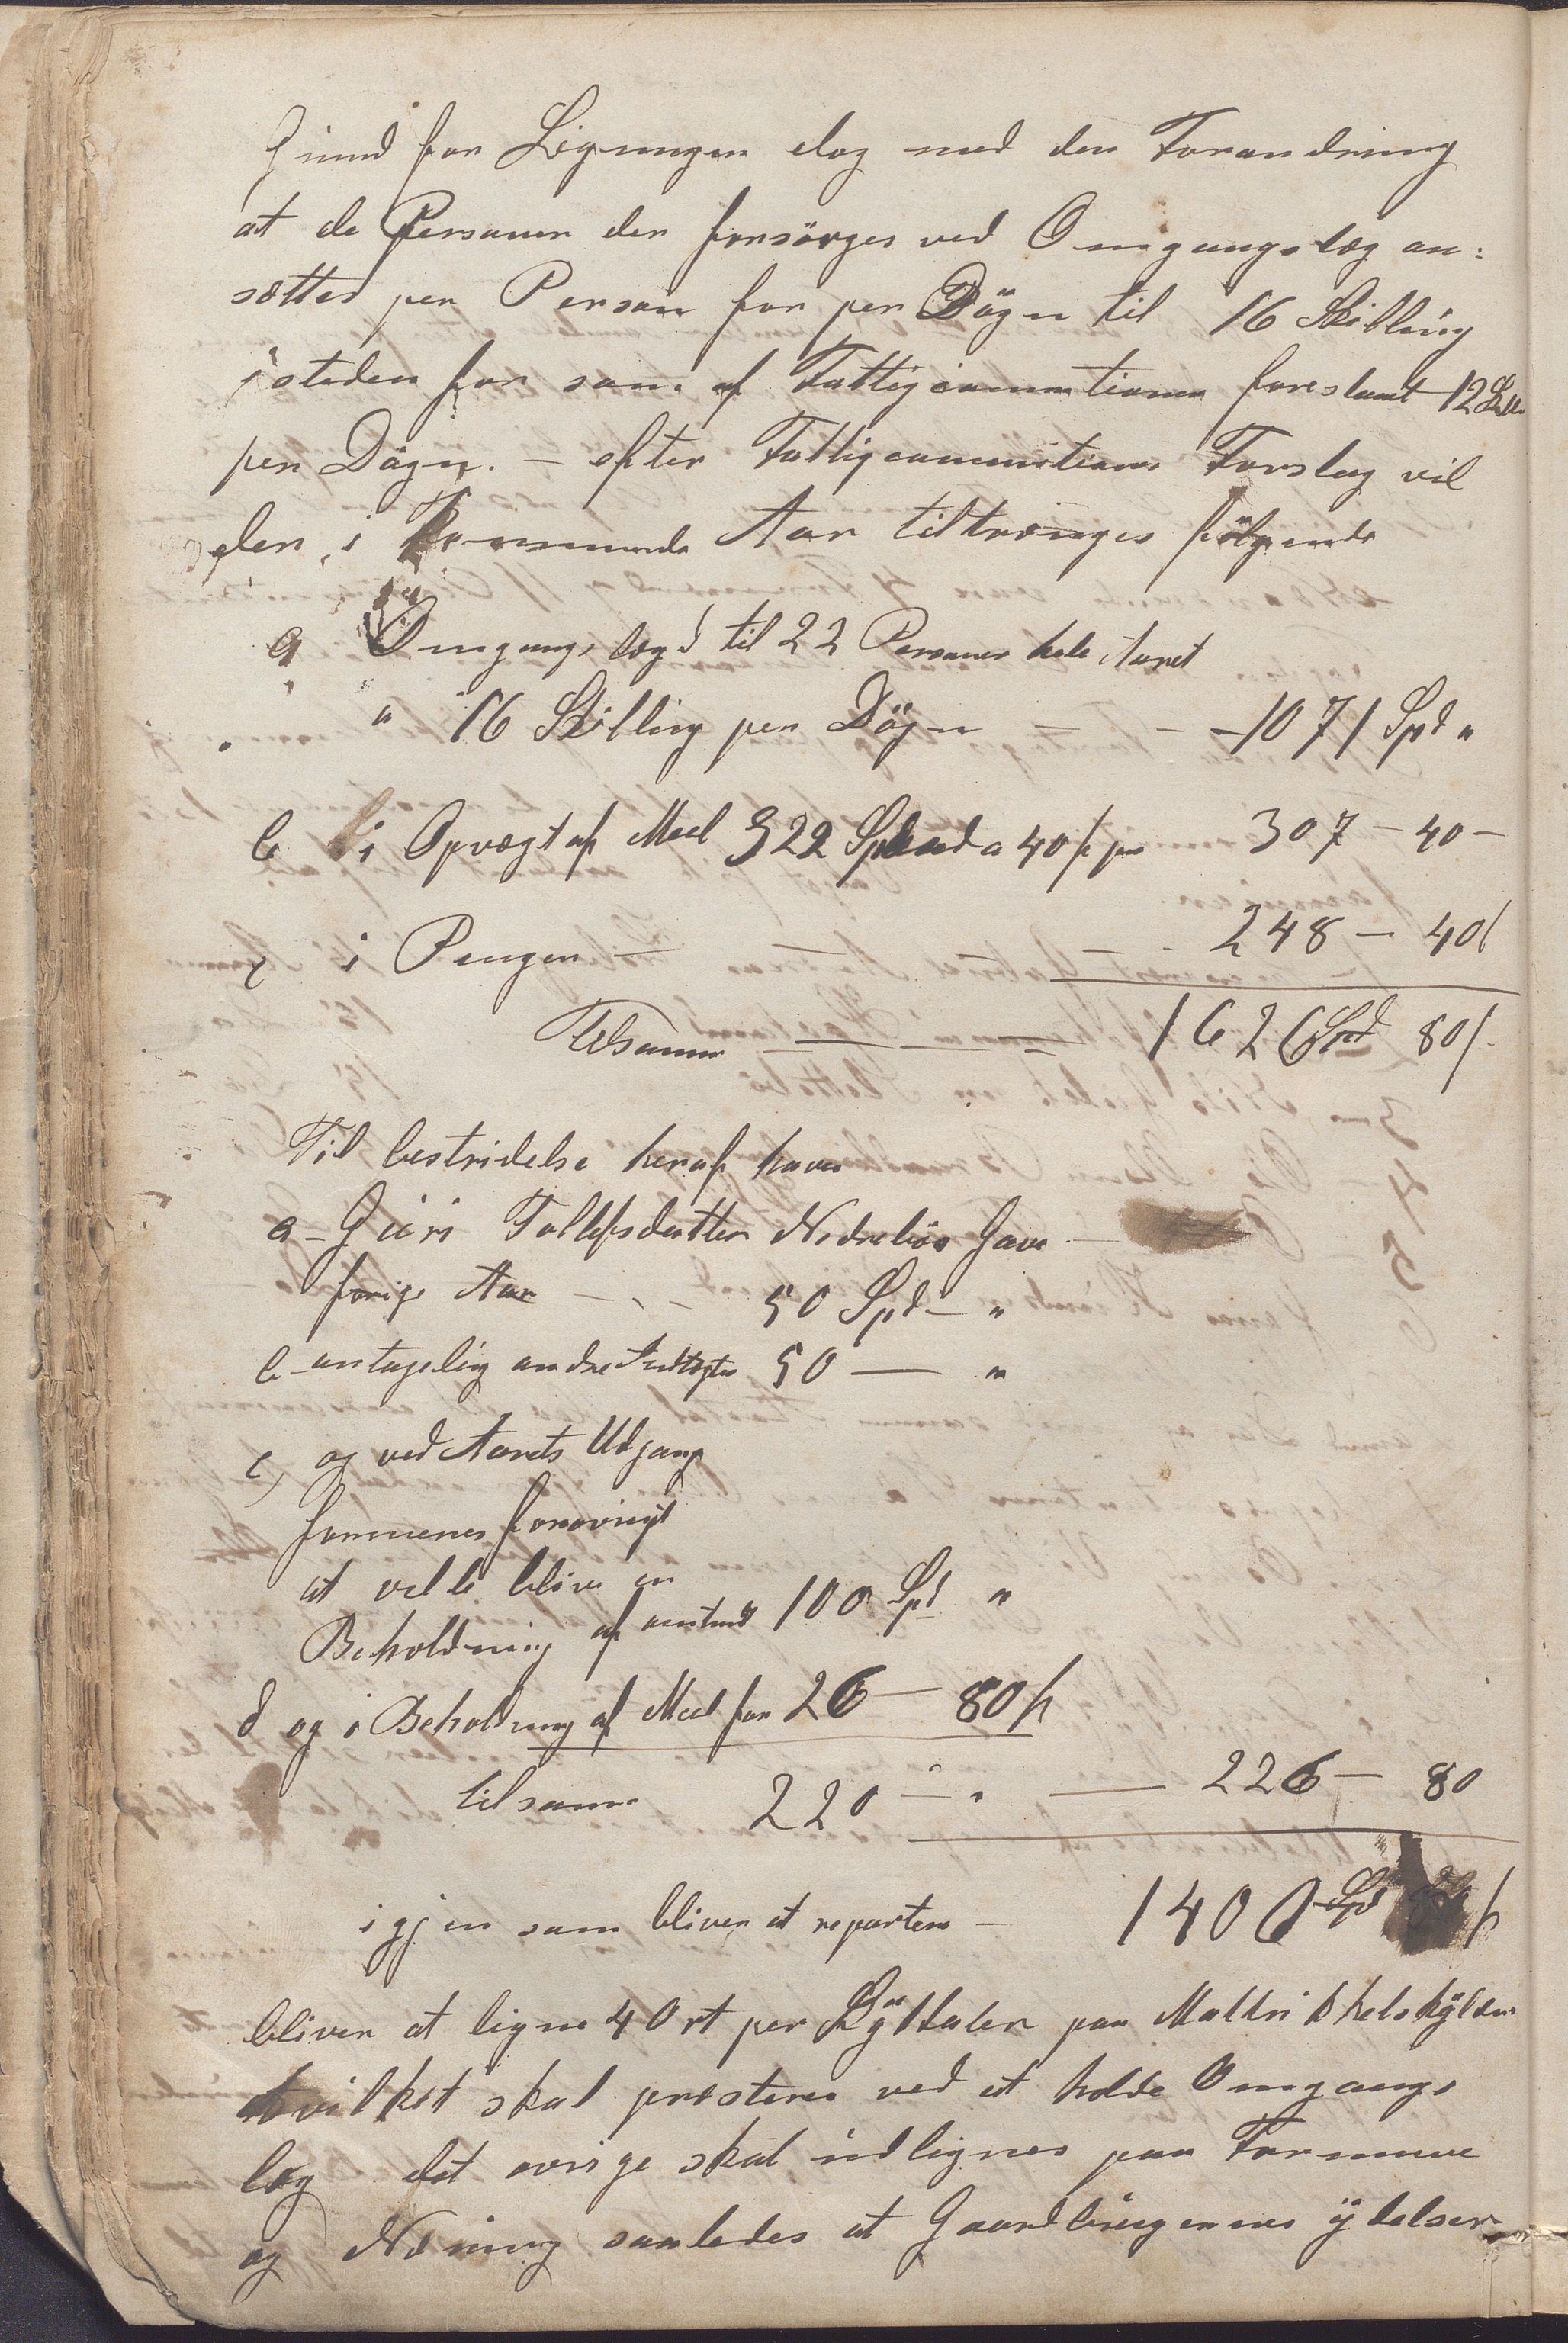 Grund for Ligningen dog med den Forandring
at de Personer der forsörges ved Omgangslæg an:
sættes per Person for per Dögn til 16 Skilling
isteden for som af Fattigcommitionen foreslaaet 12 Skill
per Dögn. - efter Fattigcommitions Forslag vil
der i kommende Aar tiltrænges fölgende
a Omgangslægd til 22 Personer hele Aaret
a 16 Skilling per Dögn - - - 1071 Spd "
b i Opvægt af Meel 922 a 40 s pr 307 - 40 -
c i Penger - - - - 248 - 40 s
Tilsamm - - - 1626 Spd 80 s.
Til bestridelse heraf haves
a - Guri Tollefsdatter Nedrebös Gave -
forige Aar - - - 50 Spd - "
b antagelig andre Indtægter 50 - "
c, og ved Aarets Udgang
formenes forövrigt
at ville blive en
Beholdning af 100 Spd "
d og i Beholdning af Meel for 26 - 80 s
tilsamm 220 - " - 226 - 80
igjen som bliver at repartere - 1400 Spd s
bliver at ligne 4 Ort per Skyldaler paa Mattrikkelskylden
hvilket skal præsteres ved at holde Omgangs
læg det övrige skal udlignes paa Formuve
og Næring saaledes at Gaardbrugernes ÿdelser